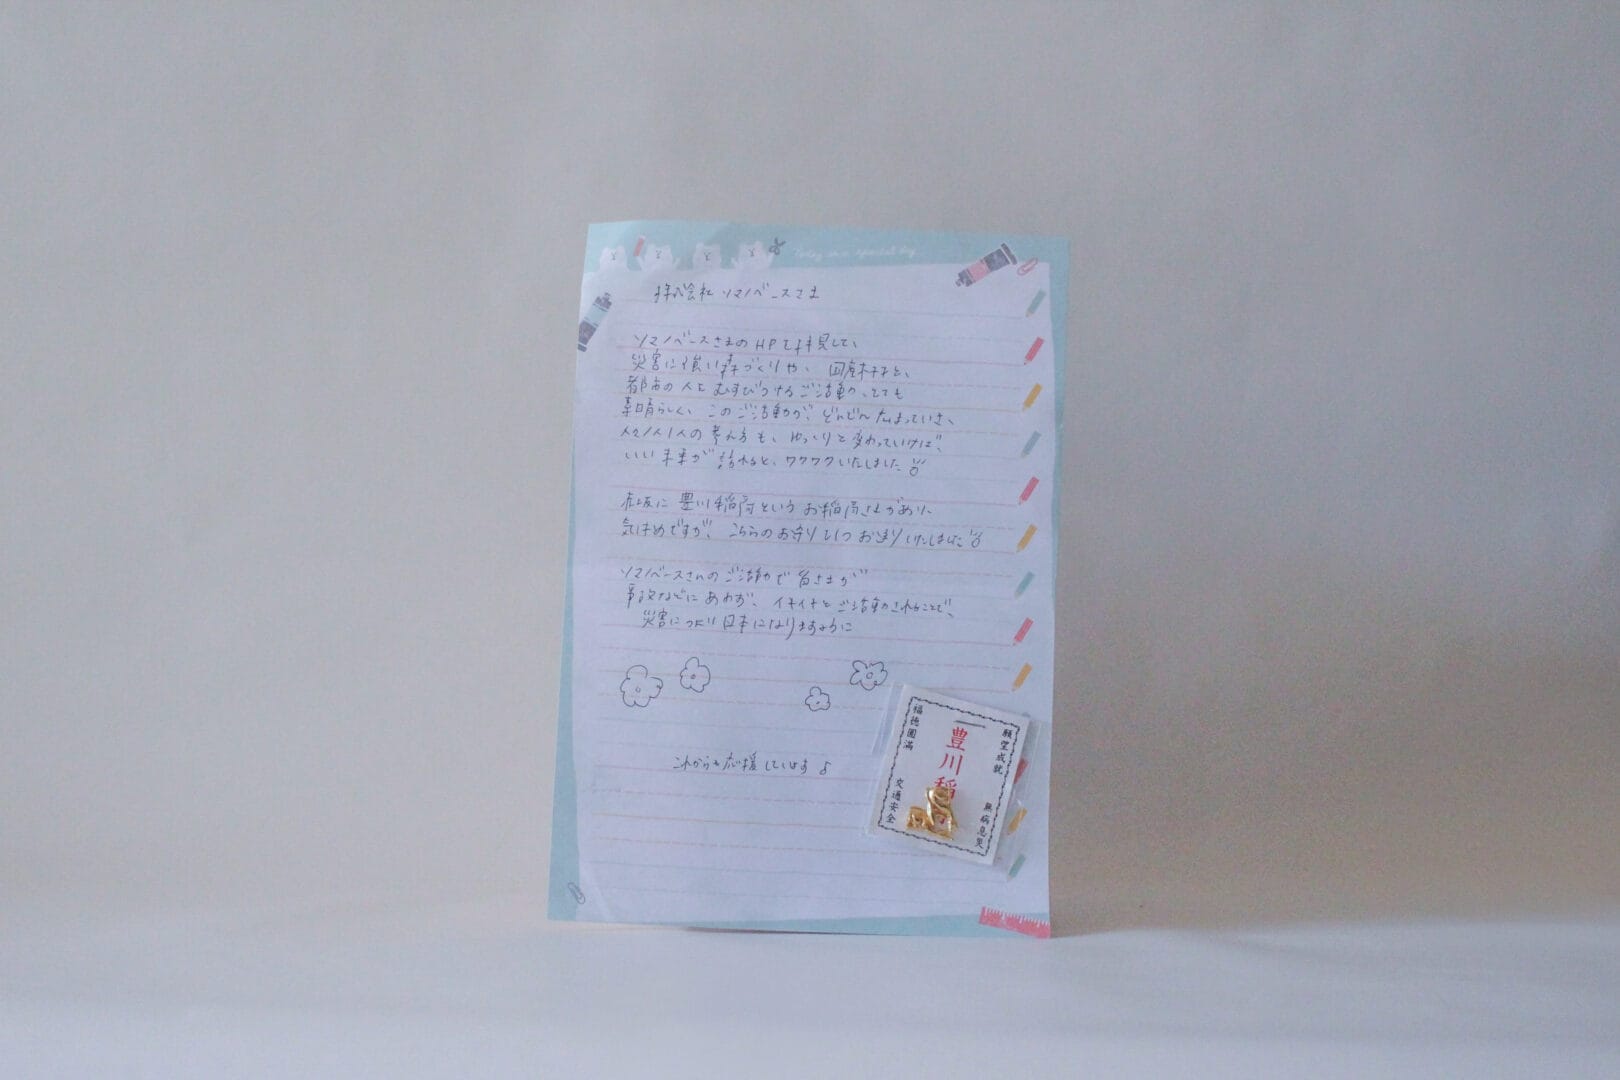 Today is a special day.
株式会社 ソマノベースさま
ソマノベースさまのHPを拝見して、
災害に強い森づくりや、国産木材と、
都市の人をむすびつけるご活動、とても
素晴らしく、このご活動が、どんどん広まっていき、
人々1人1人の考え方も、ゆっくりと変わっていけば、
いい未来が 訪れると、ワクワクいたしました
赤坂に 豊川稲荷という お稲荷さまがあり、
気休めですが、こちらのお守りひつ お送りいたしました
ソマノベースさんのご活動で 皆さまが
事故などにあわず、イキイキとご活動されることで、
災害につよい日本になりますように
これからも応援しています♪
願望成就
無病息災
豊川稲
福徳圓満
交通安全